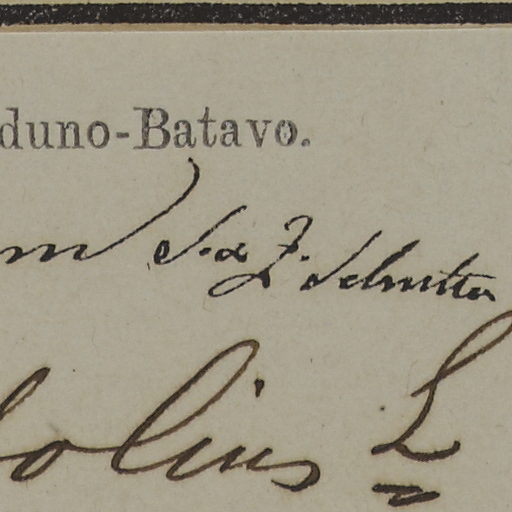 duno-Batavo.
m) S. & Z. Schultes
olius L